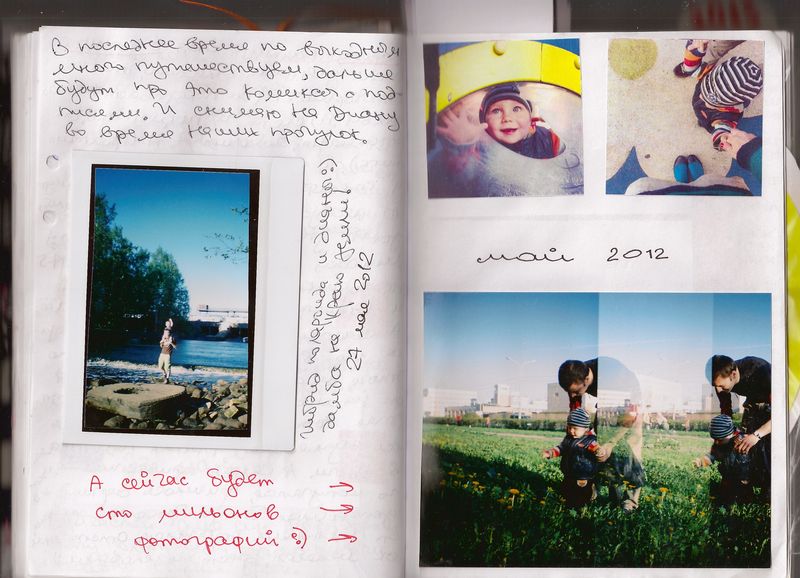 В последнее время по выходным
много путешествуем, дальше
будут про это комиксы с под-
писями. И снимаю на Диану
во время наших прогулок.
гибрид полароида и Дианы :)
дамба на краю земли.
27 мая 2012
А сейчас будет →
сто мильонов →
фотографий :) →
май 2012